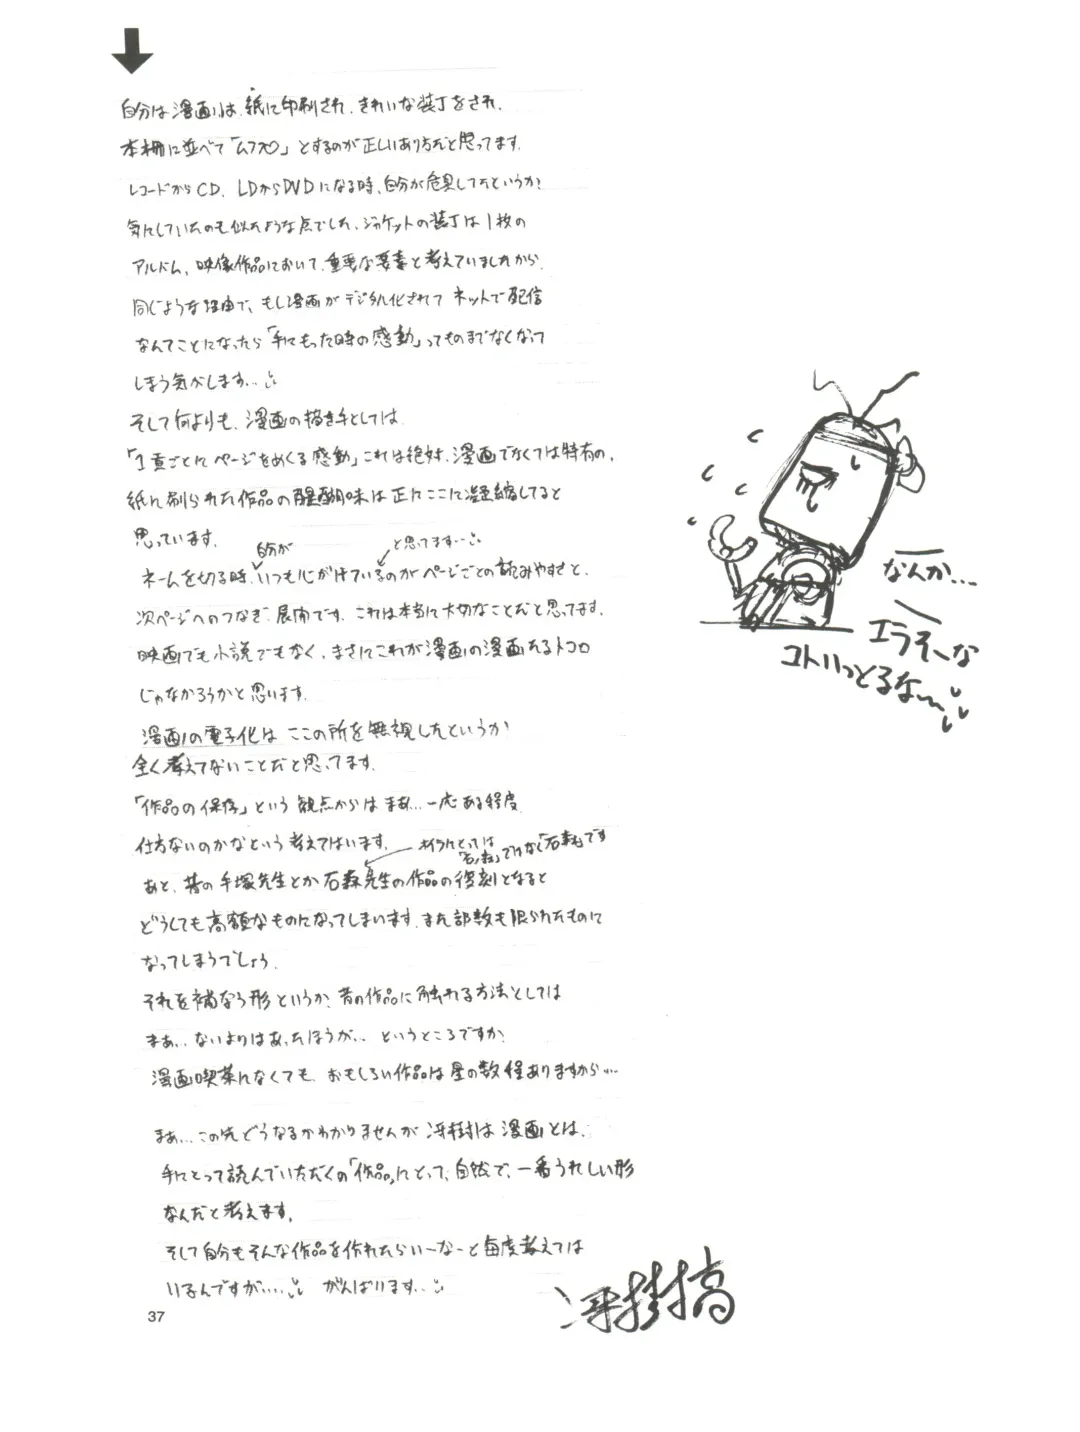 自分は漫画は、紙に印刷され、きれいな装丁をされ、
本棚に並べて「ムフ♡」とするのが正しいあり方だと思ってます。
レコードからCD、LDからDVDになる時、自分が危具してたというか?
気にしていたのも似たような点でした。ジャケットの装丁は1枚の
アルバム、映像作品において、重要な要素と考えていましたから。
同じような理由で、もし漫画がデジタル化されて ネットで配信
なんてことになったら「手にもった時の感動」ってものまでなくなって
しまう気がします…
そして何よりも、漫画の描き手としては
「1頁ごとにページをめくる感動」これは絶対、漫画でなくては特有の、
紙に刷られた作品の醍醐味は正にここに凝縮してると
思っています。
自分が
と思てます…
ネームを切る時、いつも心がけているのがページごとの読みやすさと、
次ページへのつなぎ、展開です。これは本当に大切なことだと思てます。
映画でも小説でもなく、まさにこれが漫画の漫画たるトコロ
じゃなかろうかと思います。
漫画の電子化は ここの所を無視したというか
全く考えてないことだと思ってます。
「作品の保存」という観点からは まあ…一応ある程度
仕方ないのかなという考えではいます。
オイラにとっては
「石ノ森」ではなく「石森」です
あと、昔の手塚先生とか石森先生の作品の復刻となると
どうしても高額なものになってしまいます。また部数も限られたものに
なってしまうでしょう。
それを補なう形というか、昔の作品に触れる方法としては
まあ… ないよりはあったほうが… というところですか?
漫画喫茶になくても、おもしろい作品は星の数程ありますから…
まあ…この先どうなるかわかりませんが 冴樹は漫画とは、
手にとって読んでいただくの「作品」にとって、自然で、一番うれしい形
なんだと考えます。
そして自分もそんな作品を作れたらいーなーと毎度考えては
いるんですが…. がんばります…
なんか…
エラそーな
コトいっとるな〜
37